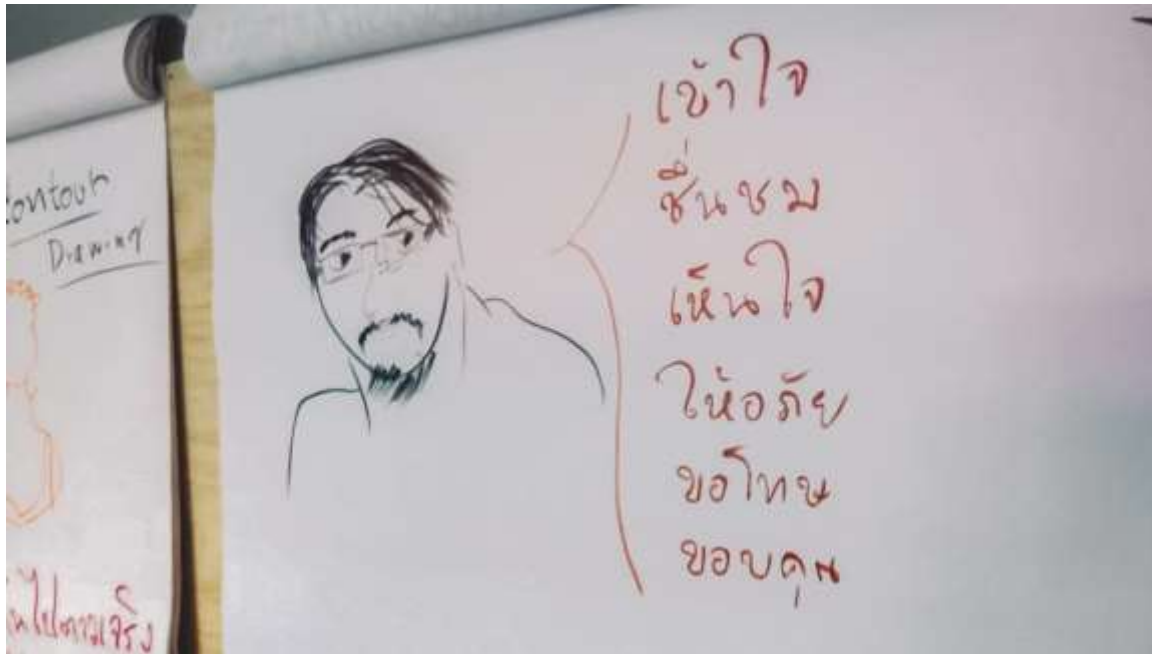 Contour
Drawing
เข้าใจ
ชื่นชม
เห็นใจ
ให้อภัย
ขอโทษ
ขอบคุณ